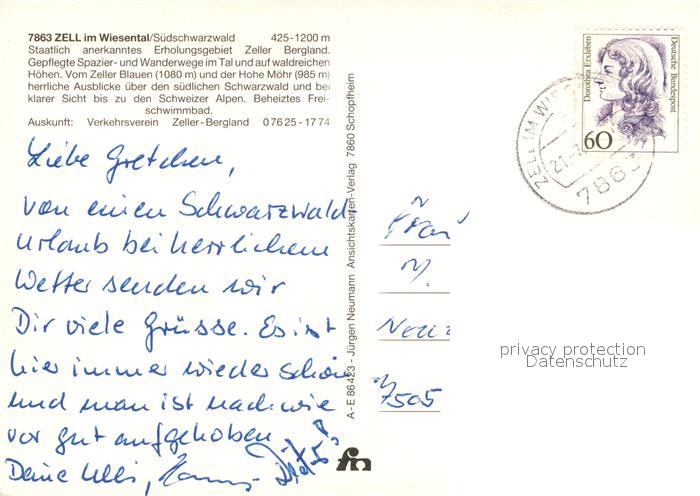 7863 ZELL im Wiesental/Südschwarzwald 425-1200 m
Staatlich anerkanntes Erholungsgebiet Zeller Bergland.
Gepflegte Spazier- und Wanderwege im Tal und auf waldreichen
Höhen. Vom Zeller Blauen (1080 m) und der Hohe Möhr (985 m)
herrliche Ausblicke über den südlichen Schwarzwald und bei
klarer Sicht bis zu den Schweizer Alpen. Beheiztes Frei-
schwimmbad.
Auskunft: Verkehrsverein Zeller-Bergland 0 76 25 - 17 74
Liebe Gretchen,
von einen Schwarzwald
urlaub bei herrlichem
Wetter senden wir
Dir viele Grüsse. Es ist
hier immer wieder schön
und man ist nach wie
vor gut aufgehoben
Deine Ulli,
A-E 86423 - Jürgen Neumann Ansichtskarten-Verlag 7860 Schopfheim
Frau
7505
Dorothea Erxleben
Deutsche Bundespost
60
ZELL IM WIES
7863
privacy protection
Datenschutz